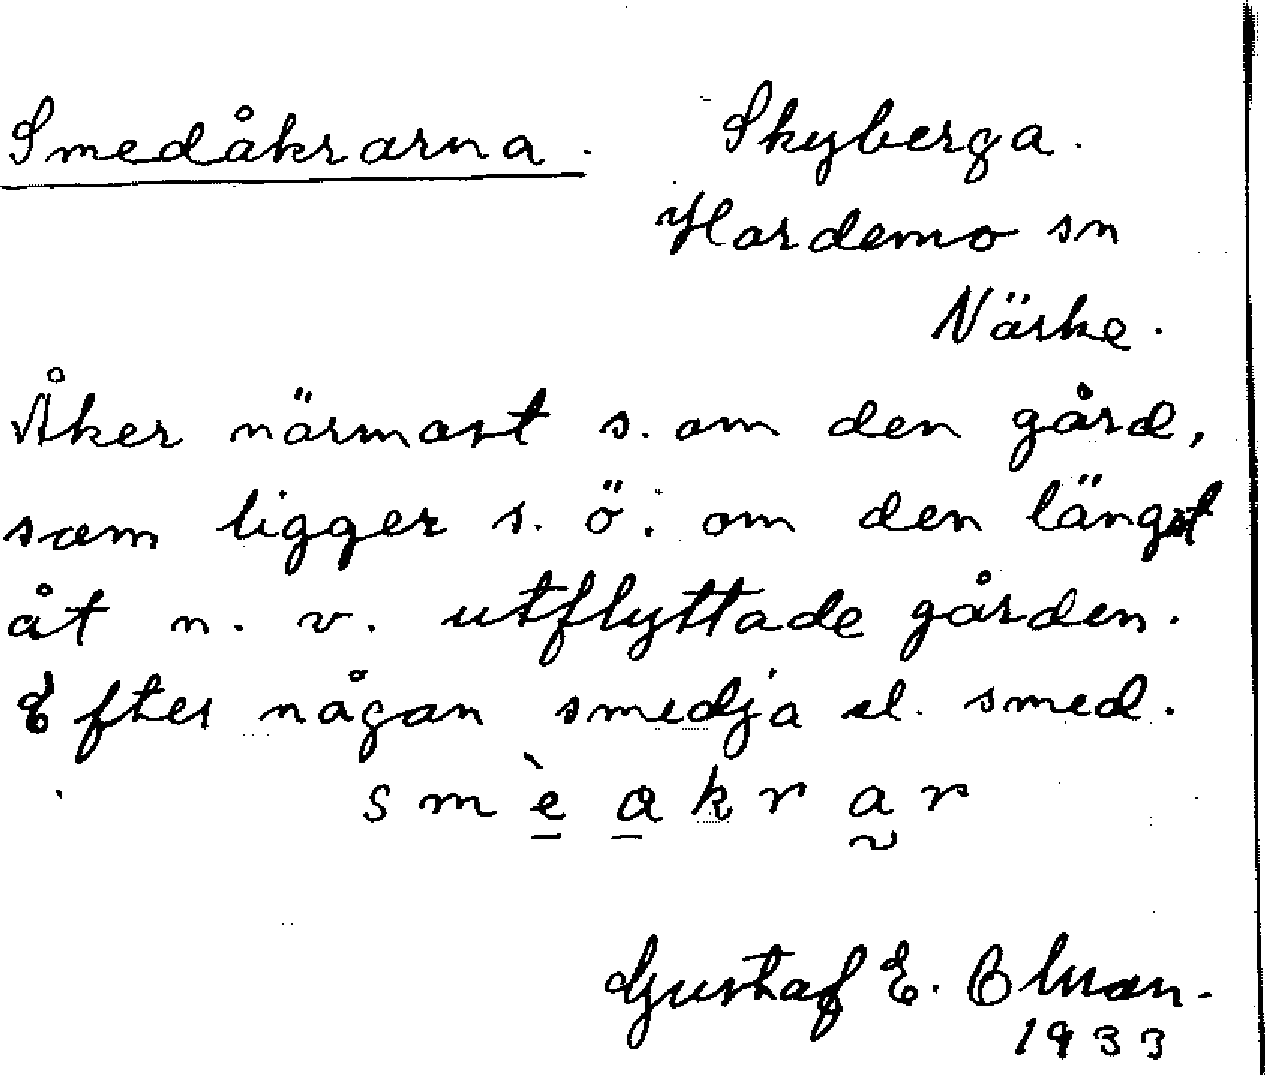 Smedåkrarna. Skyberga.
Hardemo sn
Närke.
Åker närmast s. om den gård,
som ligger s. ö. om den längst
åt n. v. utflyttade gården.
Efter någon smedja el. smed.
smèakrar
Gustaf E.
1933